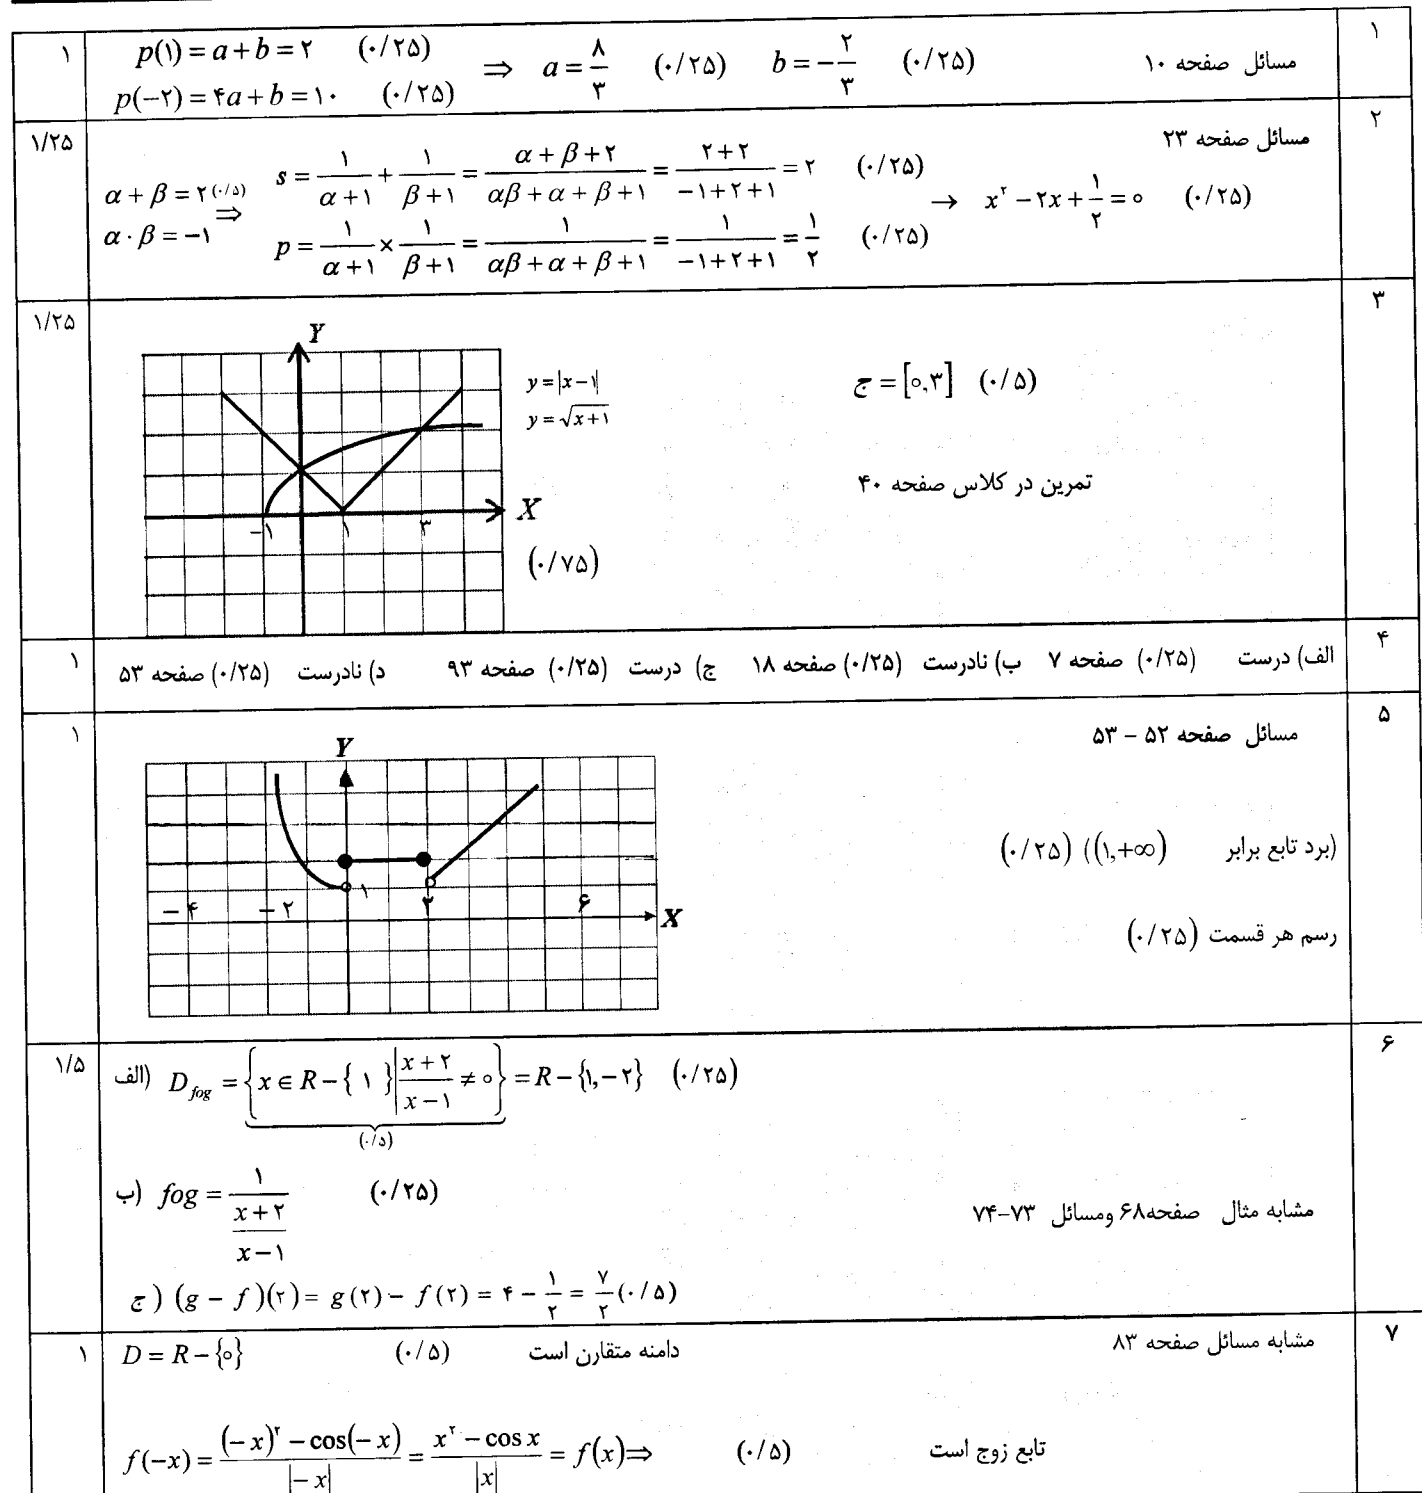 ۱
مسائل صفحه ۱۰
p(۱) = a + b = ۲ (۰/۲۵)
p(−۲) = ۴a + b = ۱۰ (۰/۲۵)
⇒ a = ۸/۳ (۰/۲۵) b = −۲/۳ (۰/۲۵)
۱
۲
مسائل صفحه ۲۳
α + β = ۲ (۰/۵)
α · β = −۱
⇒
s = ۱/(α+۱) + ۱/(β+۱) = (α+β+۲)/(αβ+α+β+۱) = (۲+۲)/(−۱+۲+۱) = ۲ (۰/۲۵)
p = ۱/(α+۱) × ۱/(β+۱) = ۱/(αβ+α+β+۱) = ۱/(−۱+۲+۱) = ۱/۲ (۰/۲۵)
→ x² − ۲x + ۱/۲ = ۰ (۰/۲۵)
۱/۲۵
۳
ج = [۰,۳] (۰/۵)
تمرین در کلاس صفحه ۴۰
y = |x − ۱|
y = √(x+۱)
(۰/۷۵)
Y
X
−۱ ۱ ۳
۱/۲۵
۴
الف) درست (۰/۲۵) صفحه ۷ ب) نادرست (۰/۲۵) صفحه ۱۸ ج) درست (۰/۲۵) صفحه ۹۳ د) نادرست (۰/۲۵) صفحه ۵۳
۱
۵
مسائل صفحه ۵۲ – ۵۳
(برد تابع برابر (۱,+∞)) (۰/۲۵)
رسم هر قسمت (۰/۲۵)
Y
X
−۴ −۲ ۱ ۲ ۶
۱
۶
الف) D_fog = {x ∈ R − {۱} | (x+۲)/(x−۱) ≠ ۰} = R − {۱,−۲} (۰/۲۵)
(۰/۵)
ب) fog = ۱/((x+۲)/(x−۱)) (۰/۲۵)
مشابه مثال صفحه۶۸ ومسائل ۷۳-۷۴
ج) (g − f)(۲) = g(۲) − f(۲) = ۴ − ۱/۲ = ۷/۲ (۰/۵)
۱/۵
۷
مشابه مسائل صفحه ۸۳
D = R − {۰} (۰/۵) دامنه متقارن است
f(−x) = ((−x)² − cos(−x))/|−x| = (x² − cos x)/|x| = f(x) ⇒ (۰/۵) تابع زوج است
۱